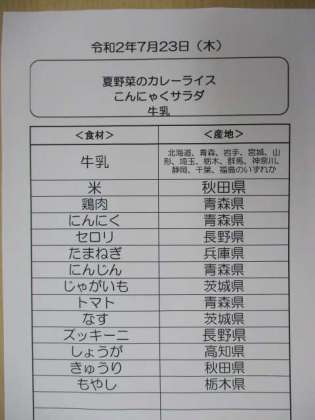 令和2年7月23日（木）
夏野菜のカレーライス
こんにゃくサラダ
牛乳
＜食材＞ ＜産地＞
牛乳 北海道、青森、岩手、宮城、山
形、埼玉、栃木、群馬、神奈川、
静岡、千葉、福島のいずれか
米 秋田県
鶏肉 青森県
にんにく 青森県
セロリ 長野県
たまねぎ 兵庫県
にんじん 青森県
じゃがいも 茨城県
トマト 青森県
なす 茨城県
ズッキーニ 長野県
しょうが 高知県
きゅうり 秋田県
もやし 栃木県